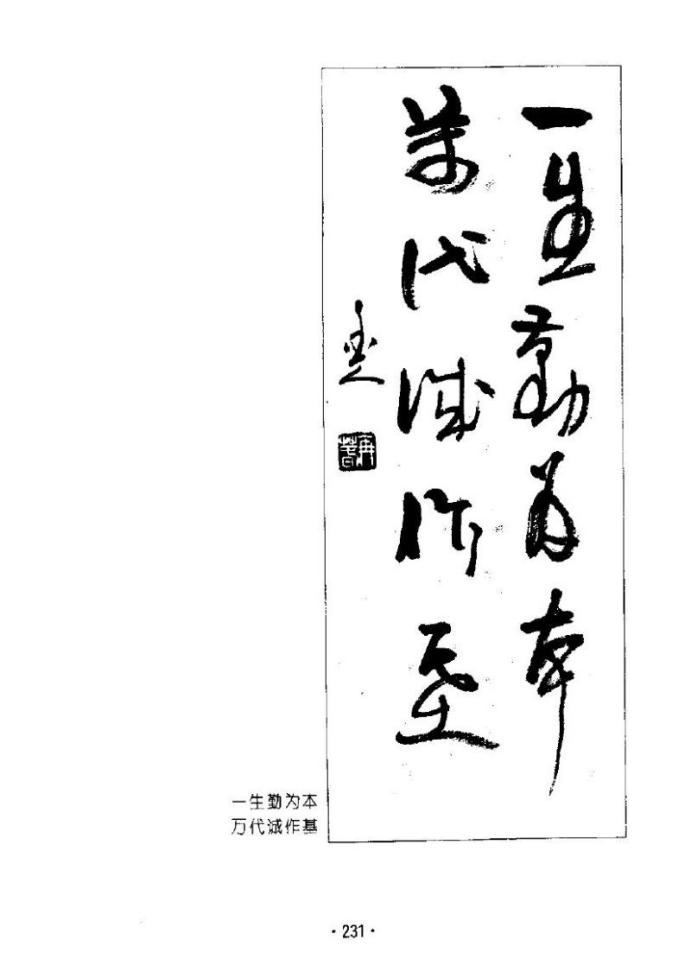 一生勤为本
万代诚作基
一生勤为本
万代诚作基
·231·